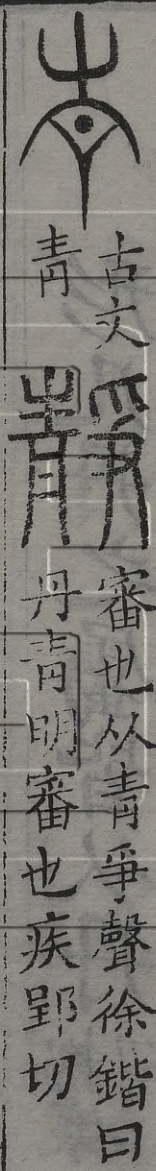 古文
青
靜
審也从青爭聲徐鍇曰
丹青明審也疾郢切